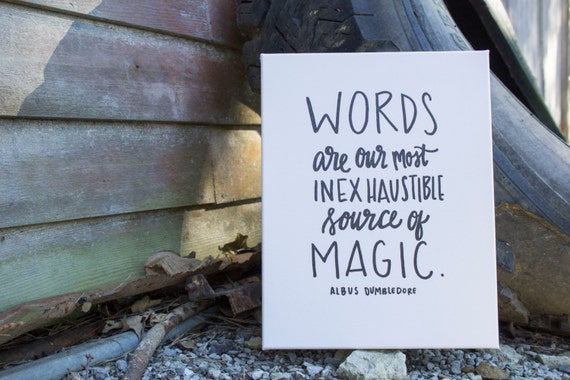 WORDS
are our most
INEXHAUSTIBLE
source of
MAGIC.
ALBUS DUMBLEDORE